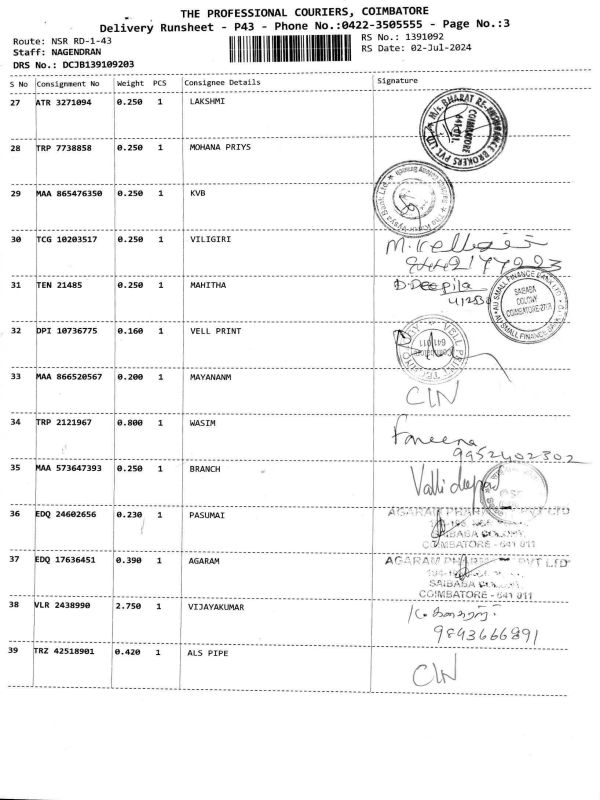 THE PROFESSIONAL COURIERS, COIMBATORE
Delivery Runsheet - P43 - Phone No.:0422-3505555 - Page No.:3
Route: NSR RD-1-43
RS No.: 1391092
Staff: NAGENDRAN
RS Date: 02-Jul-2024
DRS No.: DCJB139109203
S No Consignment No Weight PCS Consignee Details Signature
27 ATR 3271094 0.250 1 LAKSHMI
M/s. BHARAT RE-INSURANCE BROKERS PVT LTD
COIMBATORE
28 TRP 7738858 0.250 1 MOHANA PRIYS
29 MAA 865476350 0.250 1 KVB
30 TCG 10203517 0.250 1 VILIGIRI
31 TEN 21485 0.250 1 MAHITHA
D. Deepila
AU SMALL FINANCE BANK LTD
SAIBABA
COLONY
32 DPI 10736775 0.160 1 VELL PRINT
33 MAA 866520567 0.200 1 MAYANANM
C/N
34 TRP 2121967 0.800 1 WASIM
Fareena
9952402302
35 MAA 573647393 0.250 1 BRANCH
Valli
36 EDQ 24602656 0.230 1 PASUMAI
AGARAM PHARMA PVT LTD
SAIBABA COLONY,
COIMBATORE - 641 011
37 EDQ 17636451 0.390 1 AGARAM
AGARAM PHARMA PVT LTD
SAIBABA
COIMBATORE - 641 011
38 VLR 2438990 2.750 1 VIJAYAKUMAR
9893666891
39 TRZ 42518901 0.420 1 ALS PIPE
C/N